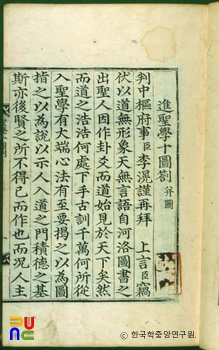 進聖學十圖劄 幷圖
判中樞府事臣李滉謹再拜 上言臣竊
伏以道無形象天無言語自河洛圖書之
出聖人因作卦爻而道始見於天下矣然
而道之浩浩何處下手古訓千萬何所從
入聖學有大端心法有至要揭之以爲圖
指之以爲說以示人入道之門積德之基
斯亦後賢之所不得已而作也而況人主
한국학중앙연구원